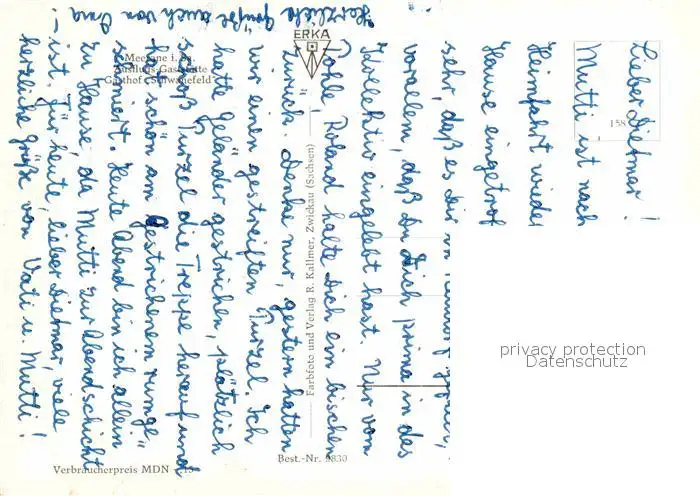 Lieber Dietmar!
Mutti ist nach
Heimfahrt wieder
Hause eingetrof
sehr, daß es dir
vorallem, daß Du Dich prima in das
Kollektiv eingelebt hast. Nur vom
Tolle Roland halte Dich ein bischen
zurück. Denke nur, gestern hatten
wir einen gestreiften Purzel. Ich
hatte Geländer gestrichen, plötzlich
schoß Purzel die Treppe herauf und
hat schön am gestrichenem rumge=
schmiert. Heute Abend bin ich allein
zu Hause, da Mutti zur Abendschicht
ist. Für heute, lieber Dietmar, viele
herzliche Grüße von Vati u. Mutti!
Herzliche Grüße auch von Oma!
ERKA
Meerane i. Sa.
Ausflugs-Gaststätte
Gasthof „Schwanefeld“
158
Farbfoto und Verlag R. Kallmer, Zwickau (Sachsen)
Best.-Nr. 9830
Verbraucherpreis MDN -,15
privacy protection
Datenschutz